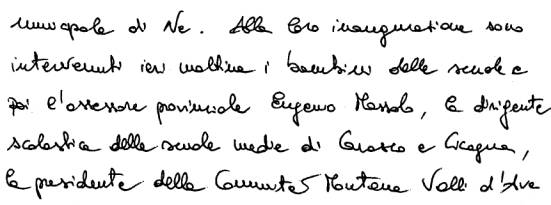 municipale di Ne. Alla loro inaugurazione sono
intervenuti ieri mattina i bambini delle scuole e
poi l'assessore provinciale Eugenio Massolo, la dirigente
scolastica delle scuole medie di Carasco e Cicagna,
la presidente della Comunità Montana Valli d'Ave